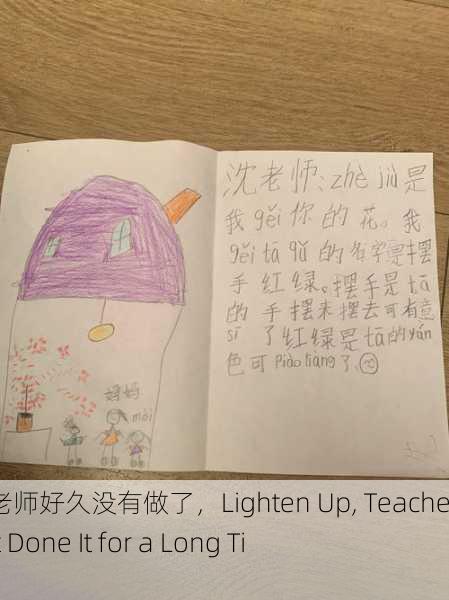 妈妈
mèi
沈老师:zhè jiù是
我gěi你的花。我
gěi tā qǔ的名字是摆
手红绿。摆手是tā
的手摆来摆去可有意
sī了红绿是tā的yán
色可piào liàng了。
老师好久没有做了，Lighten Up, Teache
t Done It for a Long Ti